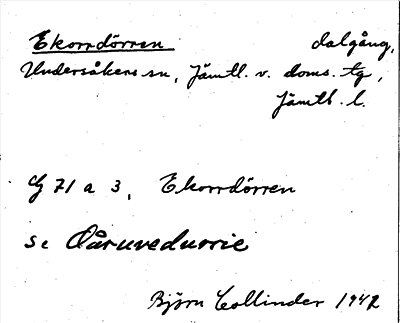 Ekorrdörren dalgång,
Undersåkers sn, Jämtl. v. doms. tg,
Jämtl. l.
G 71 a 3, Ekorrdörren
se Oåruveduorie
Björn Collinder 1942